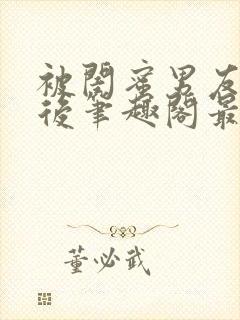 被閤蜜男友
後筆趣閣最
董必武